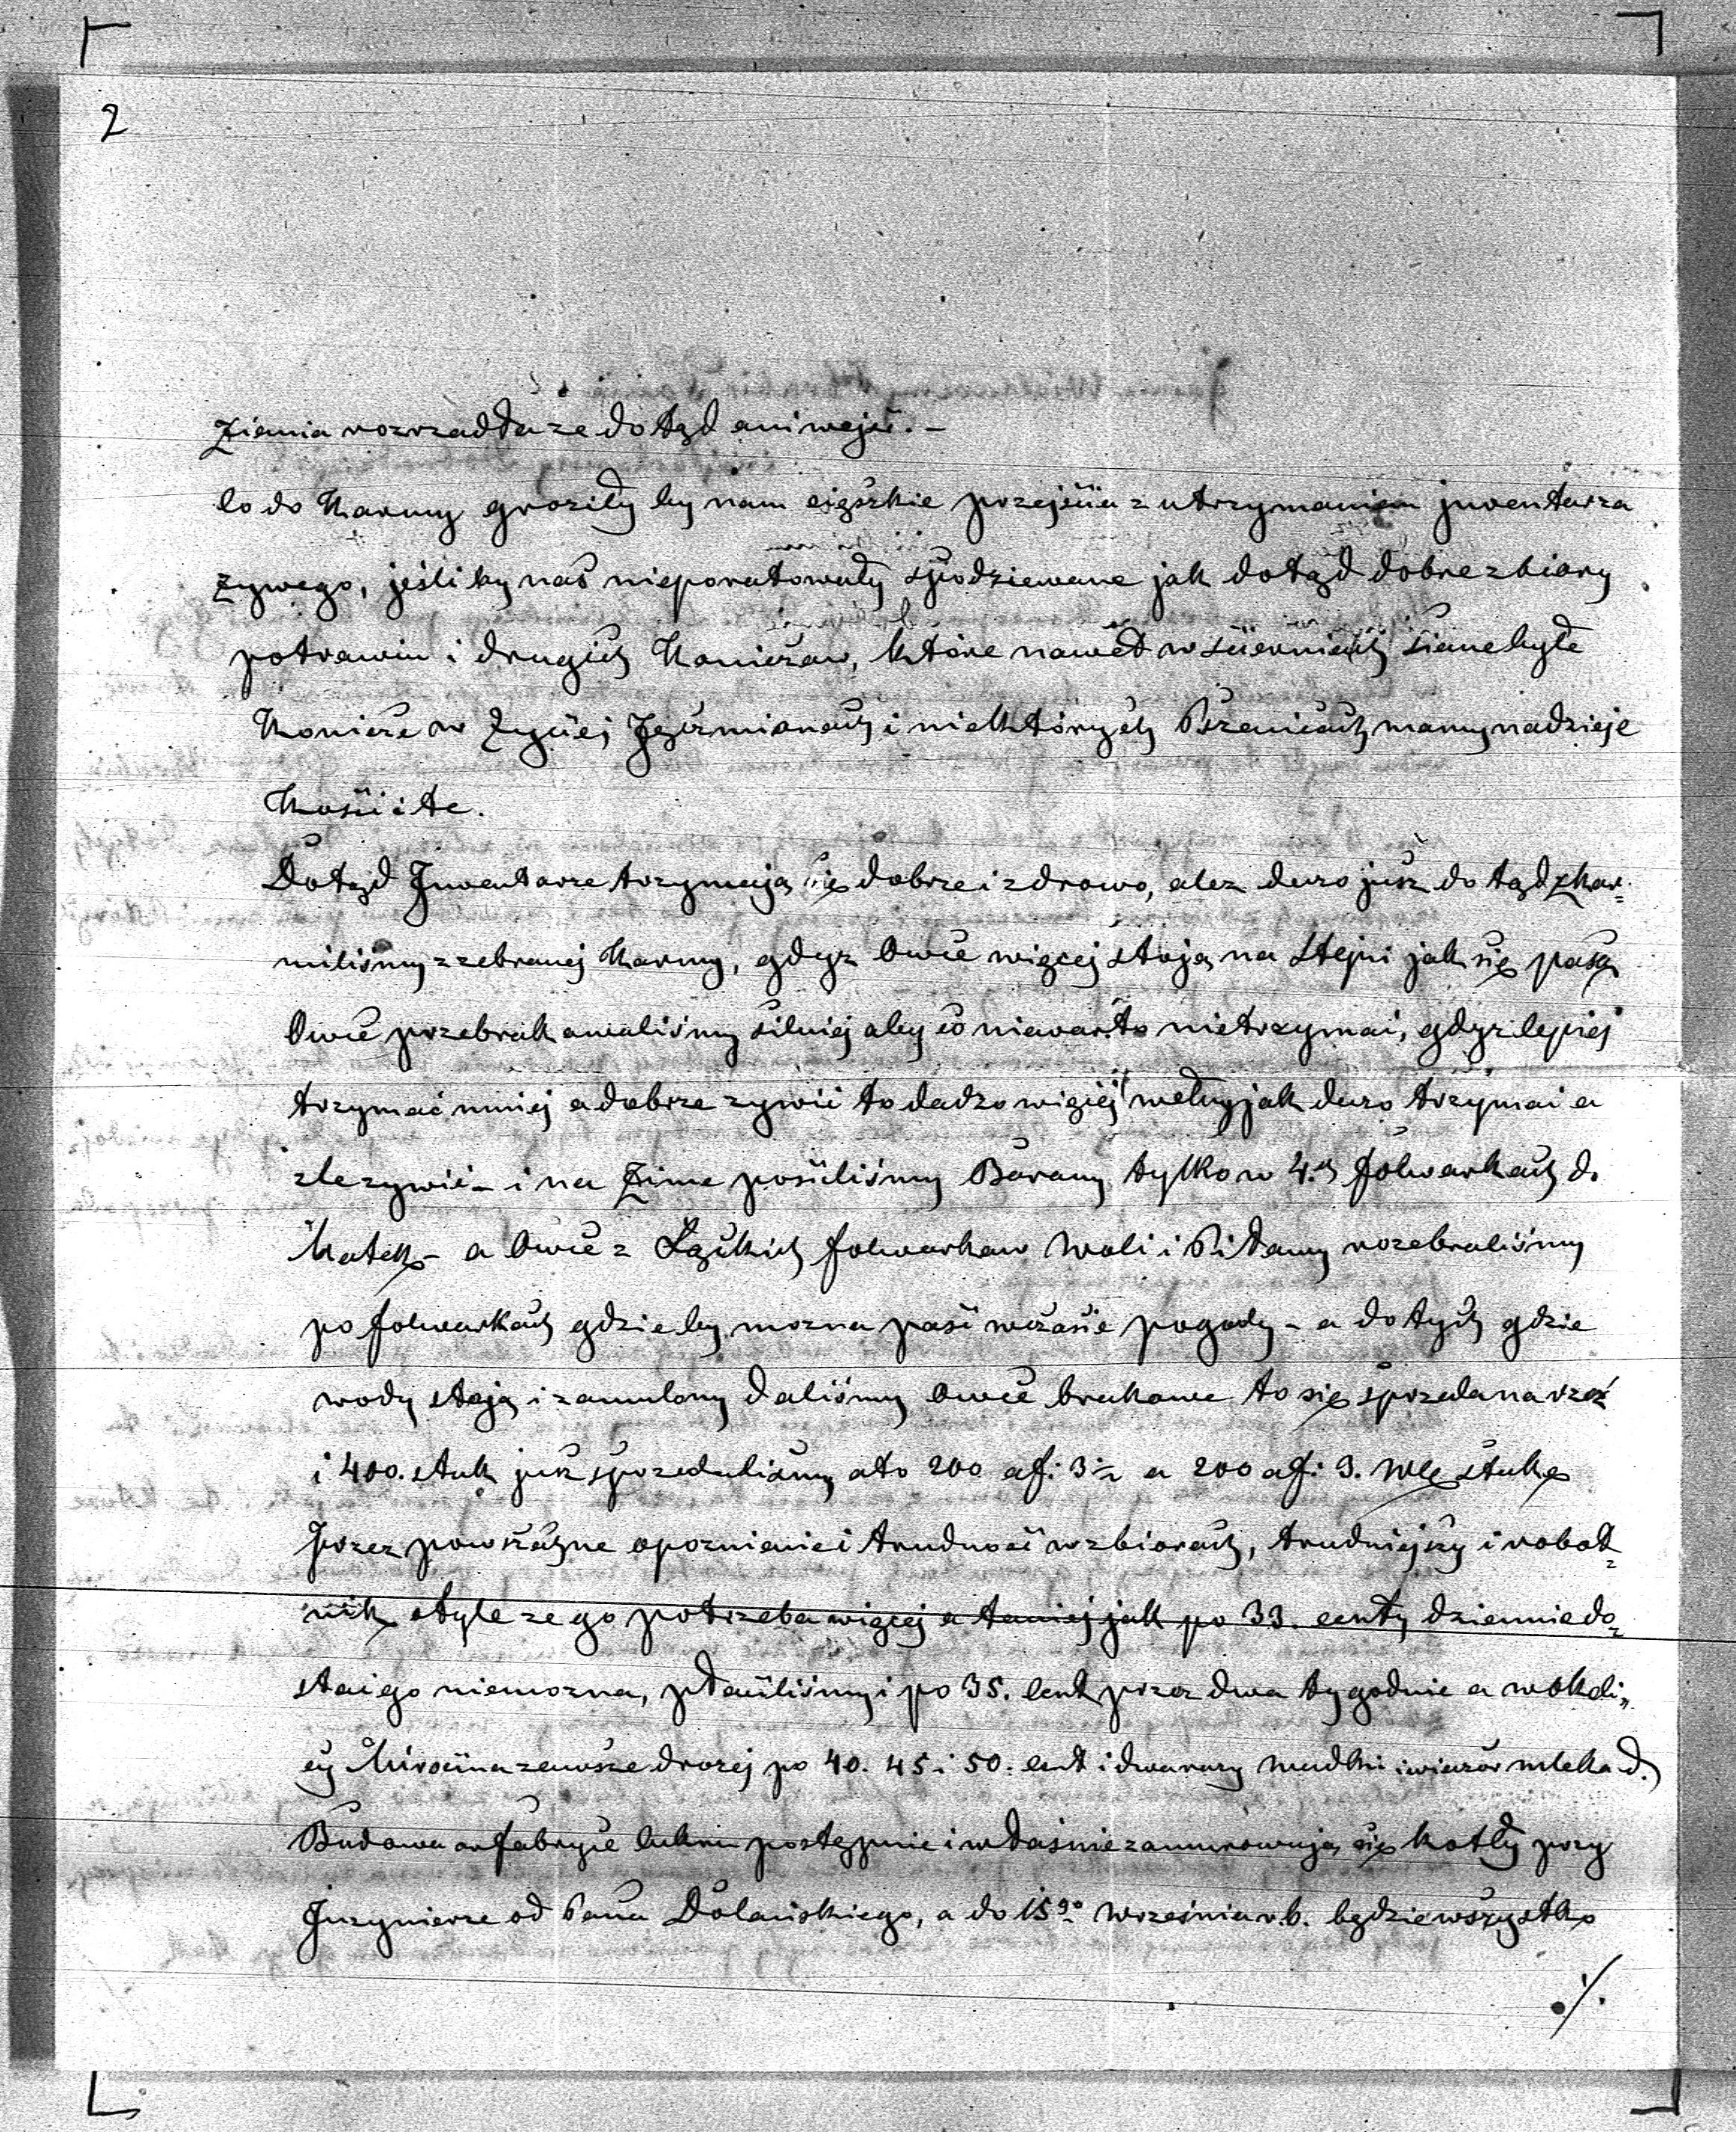 2
Ziemia rozrzadła ze dotąd ani wejść. -
Co do Karmy groziły by nam ciężkie przejścia z utrzymaniem juventarza
zywego, jeśli by nas nieporatowały spodziewane jak dotąd dobre zbiory
potrawiu i drugich Koniczow, które nawet w sciernich siane były
Konicze w życiej Jęczmionach i niektórych Pszenicach mamy nadzieje
Kosić i te.
Dotąd Juventarze trzymają się dobrze i zdrowo, alez duzo jusz dotąd zkar=
miliśmy z zebranej Karmy, gdyz Owce więcej stoją na Stejni jak się pasą
Owce przebrakowaliśmy silniej aby co niewarto nietrzymać, gdyz lepiej
trzymać mniej a dobrze zywić to dadzo więcej wełny jak duzo trzymać a
zle zywić - i na Zime posciliśmy Barany tylko w 4.ch folwarkach do
Matek - a Owce z Łąckich folwarkow Woli i Pitamy rozebraliśmy
po folwarkach gdzie by mozna paść w czasie pogody - a do tych gdzie
wody stoją i zamulony daliśmy Owce brakowe to się sprzeda na rzeź
i 400. stuk jusz sprzedaliśmy, a to 200 a f: 3½ a 200 a f: 3. Wę stukę
Przez powszechne opoznienie i trudność w zbiorach, trudniejszy i robot=
nik, o tyle ze go potrzeba więcej a taniej jak po 33. centy dziennie do=
stać go niemozna, płaciliśmy i po 35. cent przez dwa tygodnie a w okoli„
cy Mirocina zawsze drozej po 40. 45 i 50. cent i dwa razy wudki i wieczór mleka d.
Budowa w fabryce cukru postępuje i właśnie zamurowują się kotły przy
Jnzynierze od Pana Dolańskiego, a do 15go Września r.b. będzie wszystko
./.